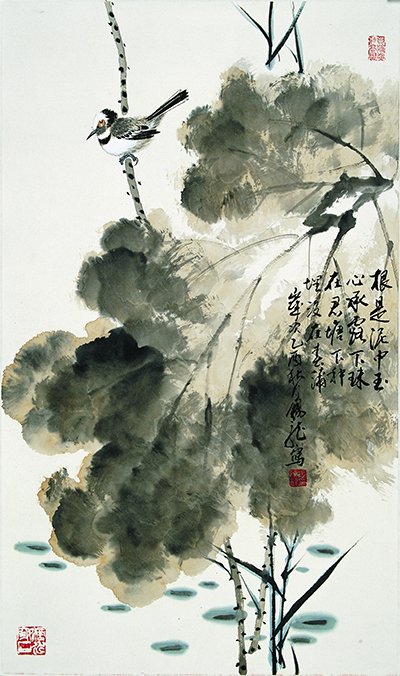 根是泥中玉
心承露下珠
在君塘下种
埋没在春蒲
歲次乙酉秋月錫龍寫